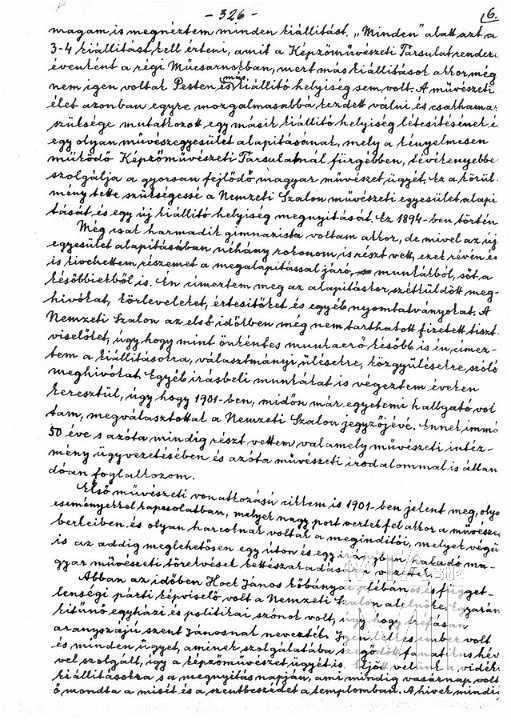 - 326 -
6.
magam, is megnéztem minden kiállitást. „Minden" alatt azt a
3-4 kiállitást kell érteni, amit a Képzőművészeti Társulat rendez
évenként a régi Műcsarnokban, mert más kiállitások akkor még
nem igen voltak Pesten és más kiállitó helyiség sem volt. A művészeti
élet azonban egyre mozgalmasabbá kezdett válni és csakhamar
szüksége mutatkozott egy másik kiállitó helyiség létesitésének é
egy olyan művészegyesület alapitásának, mely a ténylegesen
működő Képzőművészeti Társulatnál fürgébben, tevékenyebbe
szolgálja a gyorsan fejlődő magyar művészet ügyét. Ez a körül-
mény tette szükségessé a Nemzeti Szalon művészeti egyesület alapi
tását, és egy új kiállitó helyiség megnyitását. Ez 1894-ben történ
Még csak harmadik gimnazista voltam akkor, de mivel az új
egyesület alapitásában néhány rokonom is részt vett, ezek révén én
is kivehettem részemet a megalapitással járó munkából, sőt a
későbbiekből is. Én cimeztem meg az alapitáskor szétküldött meg-
hivókat, körleveleket, értesitőket és egyéb nyomtatványokat. A
Nemzeti Szalon az első időkben még nem tarthatott fizetett tiszt
viselőket, úgy hogy mint önkéntes munkaerő később is én cimez-
tem a kiállitásokra, választmányi ülésekre, közgyülésekre szóló
meghivókat. Egyéb irásbeli munkákat is végeztem éveken
keresztül, úgy hogy 1901-ben, midőn már egyetemi hallgató vol
tam, megválasztottak a Nemzeti Szalon jegyzőjévé. Ennek immá
50 éve s azóta mindig részt vettem valamely művészeti intéz-
mény ügyvezetésében és azóta művészeti irodalommal is állan
dóan foglalkozom.
Első művészeti vonatkozású cikkem is 1901-ben jelent meg, olya
eseményekkel kapcsolatban, melyek nagy port vertek fel akkor a művésze
berkeiben és olyan harcoknak voltak a meginditói, melyek végü
is az addig meglehetősen egy úton és egy irányban haladó ma-
gyar művészeti törekvések kettészakadására vezettek.
Abban az időben Hock János kőbányai plébános és függet-
lenségi párti képviselő volt a Nemzeti Szalon alelnöke. Egyarán
kitünő egyházi és politikai szónok volt, úgy hogy tréfásan
aranyszájú szent Jánosnak nevezték. Igen lelkes ember volt
és minden ügyet, aminek szolgálatába szegődött, fanatikus hév
vel szolgált, igy a képzőművészet ügyét is. Eljött velünk a vidéki
kiállitásokra s a megnyitás napján, ami mindig vasárnap volt
ő mondta a misét és a szentbeszédet a templomban. A hivek mindig